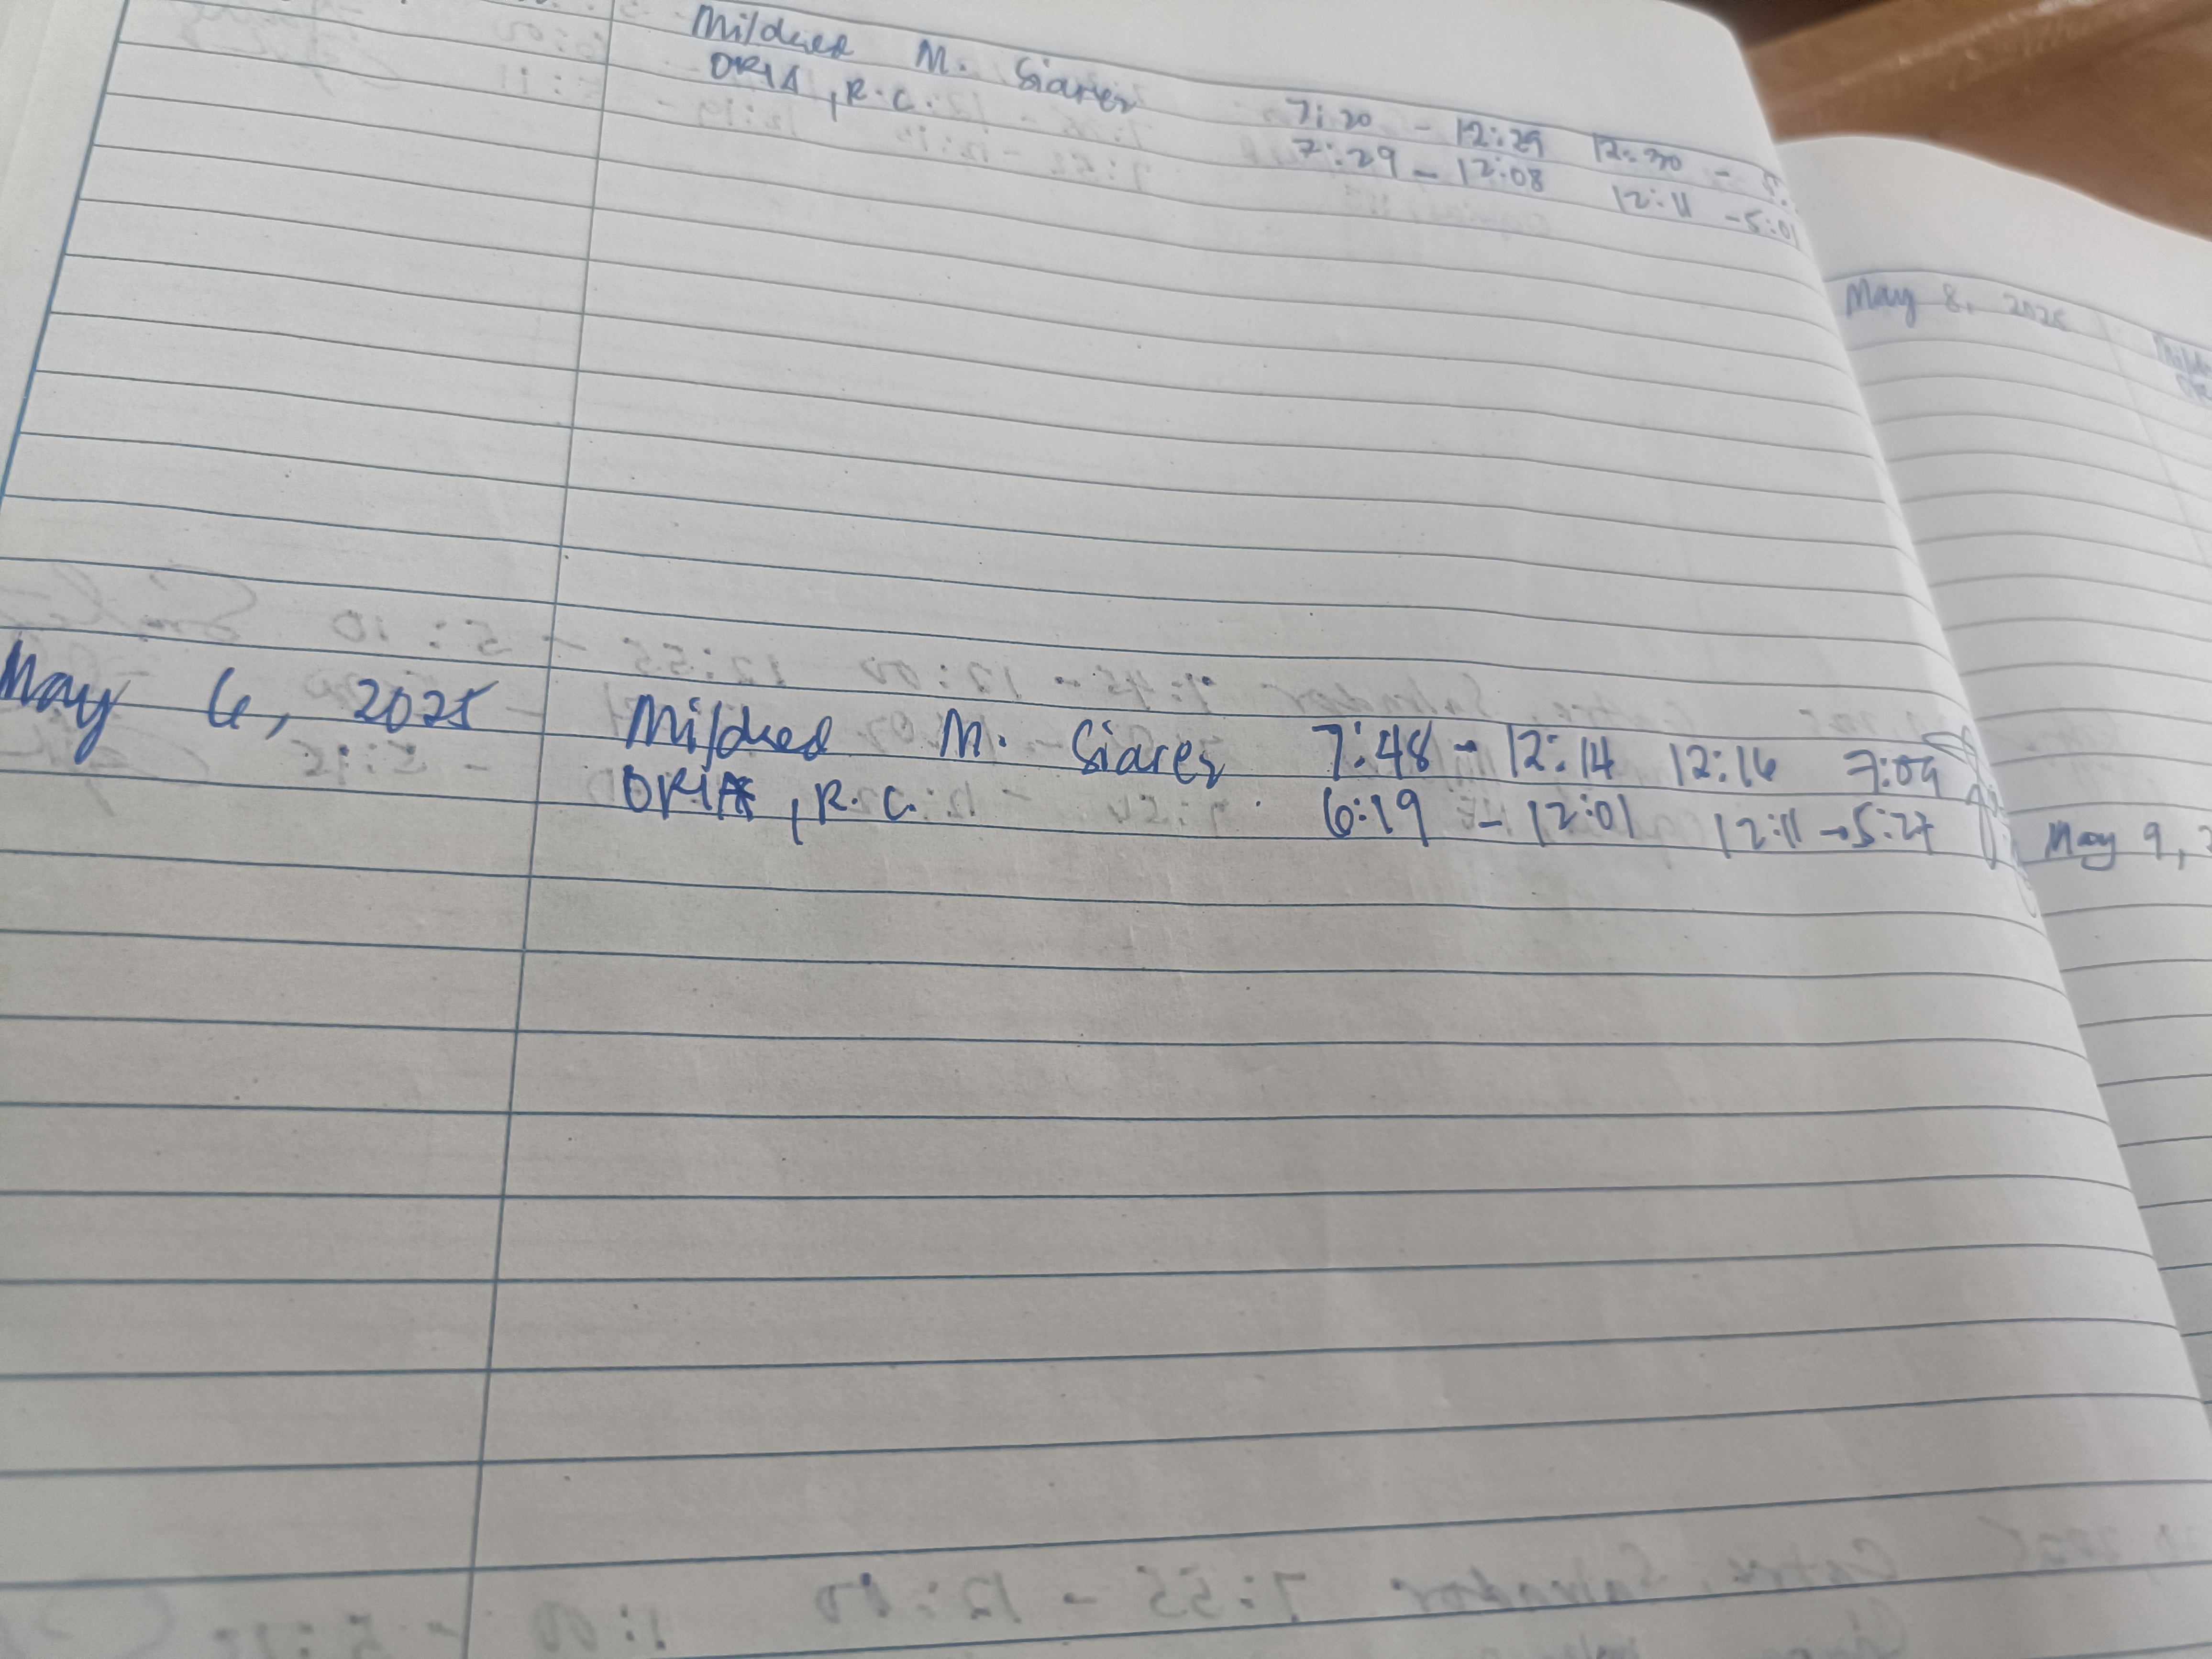 Mildred M. Siares 7:20 - 12:29 12:30 -
ORIA, R.C. 7:29 - 12:08 12:11 - 5:01
May 6, 2025 Mildred M. Siares 7:48 - 12:14 12:16 7:09
ORIA, R.C. 6:19 - 12:01 12:11 - 5:27
May 8, 2025
May 9,